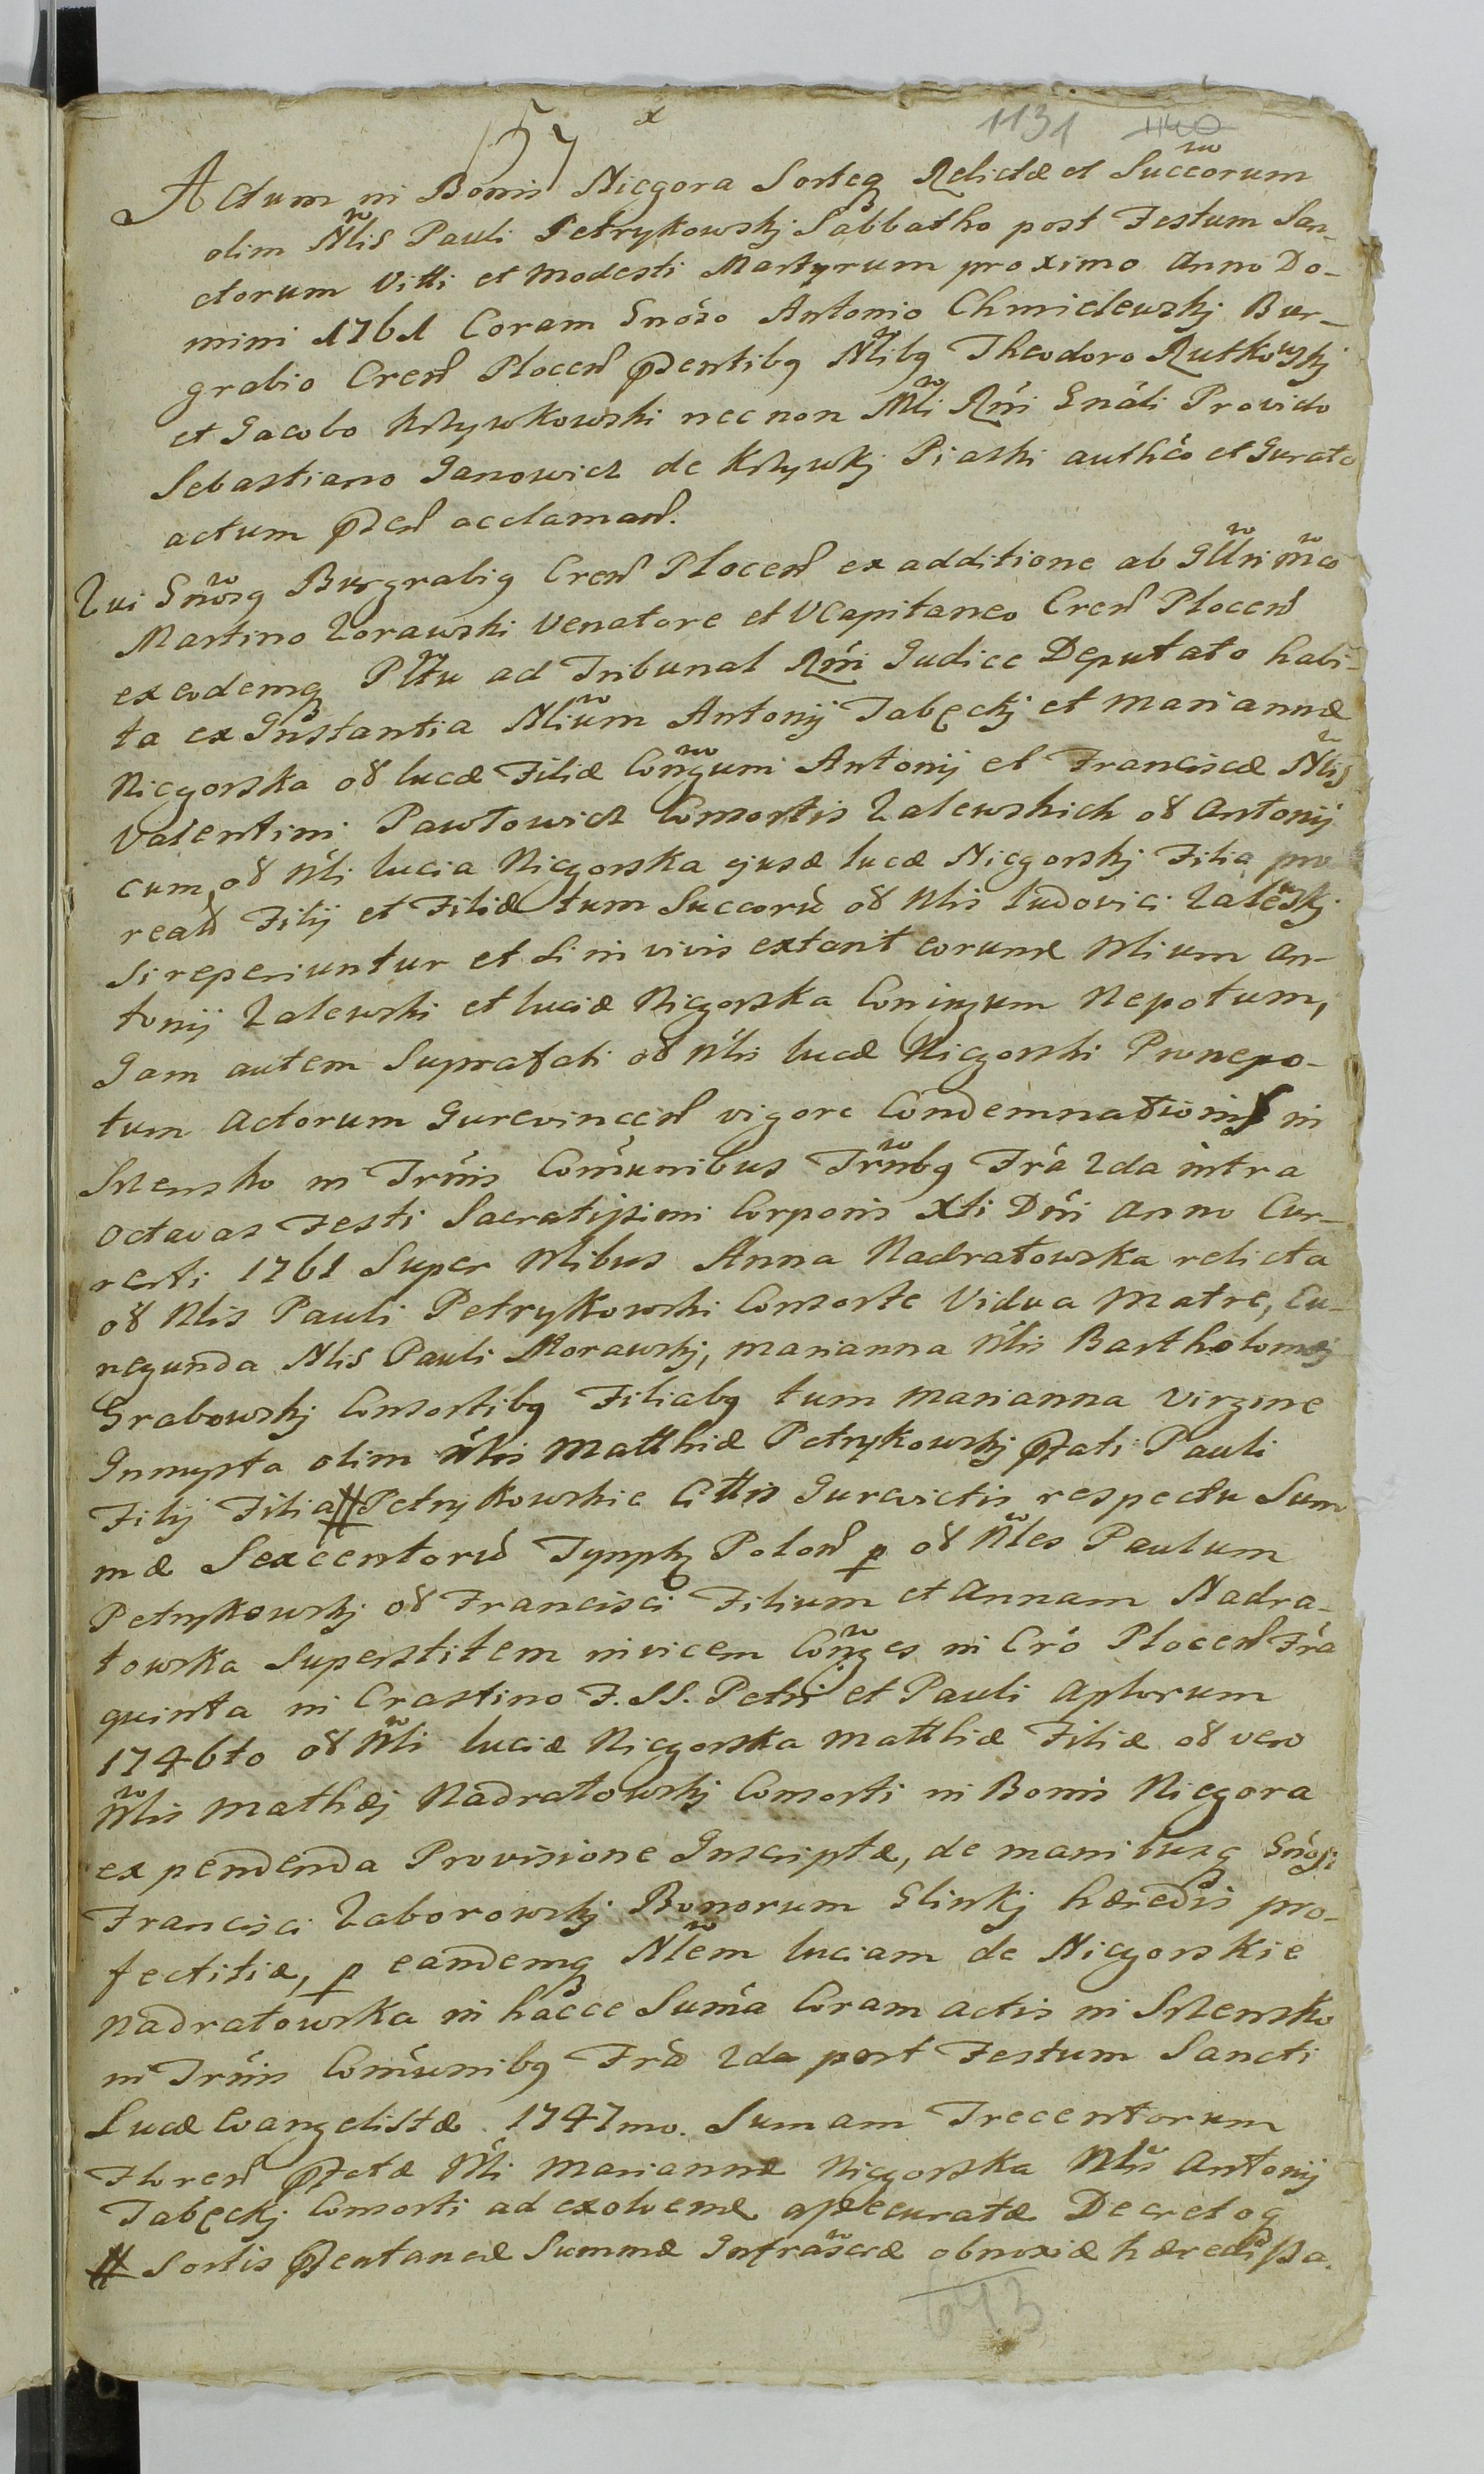 157 x 1131 1140
Actum in Bonis Niegora Sorteq Relictæ et Succorum
olim Nlis Pauli Petrykowskj Sabbatho post Festum San-
ctorum Vitti et Modesti Martyrum proximo Anno Do-
mini 1761 Coram Gnoso Antonio Chmielewskj Bur-
grabio Cren Plocen Pdentibq Nlibq Theodoro Rutkowskj
et Jacobo Krzywkowski necnon Mli Rni Gnali Provido
Sebastiano Janowicz de Krzywkj Piaski authco et Jurato
actum Pden acclaman.
Qui Gnosq Burgrabiq Cren Plocen ex additione ab Illri mco
Martino Zorawski Venatore et VCapitaneo Cren Plocen
exeodemq Plttu ad Tribunal Rni Judice Deputato habi-
ta ex Instantia Nlium Antonij Tabęckj et Mariannæ
Niegorska oδ lucæ Filiæ Congum Antonij et Franciscæ Nlis
Valentini Pawłowicz Consortis Zalewskich oδ Antonij
cum oδ Nli lucia Niegorska ejusd lucæ Niegorskj Filia pro
rean Filij et Filiæ tum Succorū oδ Nlis ludovici Zaleskj
si reperiuntur et si in vivis extant eorund Nlium An-
tonij Zalewski et luciæ Niegorska Coniugum Nepotum,
Jam autem Suprafati oδ Nlis lucæ Niegorski Pronepo-
tum Actorum Jurevincen vigore Condemnationis in
Srzensko in Trnis Comunibus Trnbq Fra 2da intra
octavas Festi Sacratissimi Corporis Xti Dni Anno Cur-
renti 1761 Super Nlibus Anna Nadratowska relicta
oδ Nlis Pauli Petrykowski Consorte Vidua Matre, Cu-
negunda Nlis Pauli Morawskj, Marianna Nlis Bartholomej
Grabowskj Consortibq Filiabq tum Marianna Virgine
Innupta olim Nlis Matthiæ Petrykowskj Pfati Pauli
Filij Filia # Petrykowskie Cittis Jurevictis respectu Sum
mæ Sexcentorū Tynph Polon p oδ Nles Paulum
Petrykowskj oδ Francisci Filium et Annam Nadra-
towska Superstitem invicem Conges in Cro Plocen Fra
quinta in Crastino F. SS. Petri et Pauli Aplorum
1746to oδ Nli luciæ Niegorska Matthiæ Filiæ oδ vero
Nlis Mathæj Nadratowskj Consorti in Bonis Niegora
ex pendenda Provisione Inscriptæ, de manibusq Gnosi
Francisci Zaborowskj Bonorum Glinkj hæredis pro-
fectitiæ, p eandemq Nlem luciam de Niegorskie
Nadratowska in hacce Suma Coram actis in Srzensko
in Trnis Comunibq Fra 2da post Festum Sancti
Lucæ Evangelistæ 1747mo. Sumam Trecentorum
Floren Pfctæ Nli Mariannæ Niegorska Nlis Antonij
Tabęckj Consorti ad exolvend assecuratæ Decretoq
# Sortis Pdentaneæ Summæ Infrascæ obnoxiæ hæredissa.
693